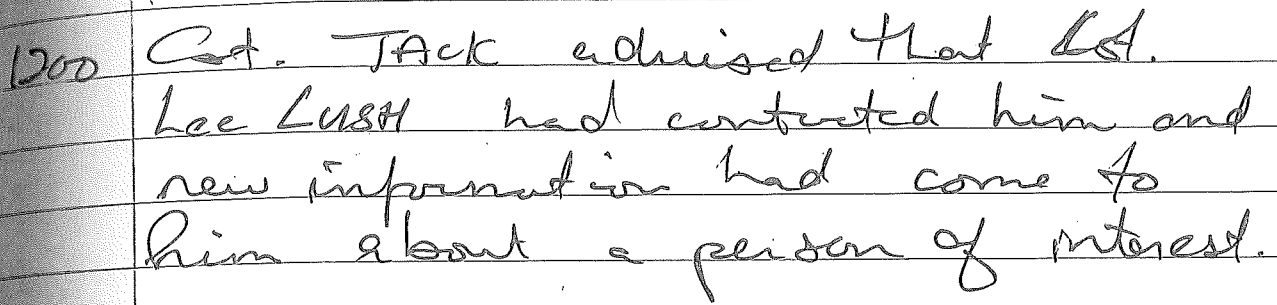 1200 Cst. JACK advised that Cst.
Lee LUSH had contacted him and
new information had come to
him about a person of interest.